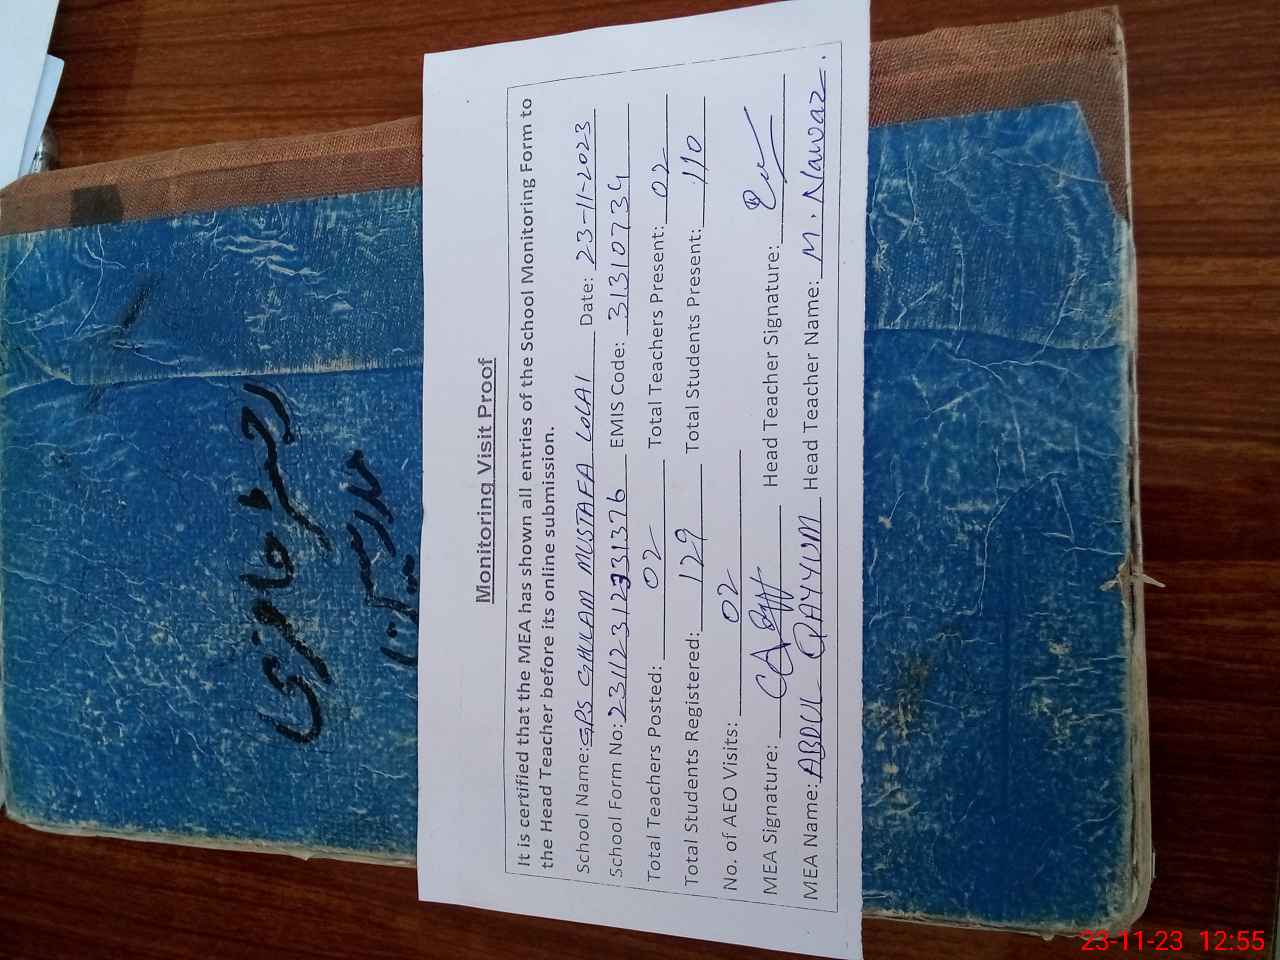 Monitoring Visit Proof
It is certified that the MEA has shown all entries of the School Monitoring Form to
the Head Teacher before its online submission.
School Name: GPS GHULAM MUSTAFA LOLAI Date: 23-11-2023
School Form No: EMIS Code: 31310734
Total Teachers Posted: 02 Total Teachers Present: 02
Total Students Registered: 129 Total Students Present: 110
No. of AEO Visits: 02
MEA Signature: Head Teacher Signature:
MEA Name: ABDUL QAYYUM Head Teacher Name: M. Nawaz.
رجسٹر حاضری
مدرسین
23-11-23 12:55